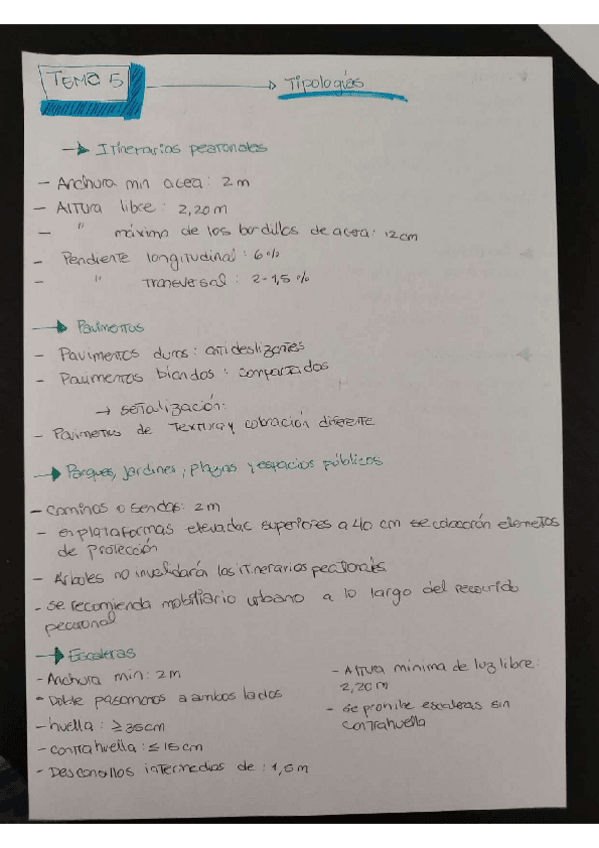 TEMA 5 → Tipologías
→ Itinerarios peatonales
- Anchura min acera: 2 m
- Altura libre: 2,20 m
- " máxima de los bordillos de acera: 12 cm
- Pendiente longitudinal: 6 %
- " transversal: 2-1,5 %
→ Pavimentos
- Pavimentos duros: antideslizantes
- Pavimentos blandos: compactados
→ señalización:
- Pavimentos de textura y coloración diferente
→ Parques, jardines, playas y espacios públicos
- Caminos o sendas: 2 m
- en plataformas elevadas superiores a 40 cm se colocarán elementos
de protección
- Árboles no invalidará los itinerarios peatonales
- se recomienda mobiliario urbano a lo largo del recorrido
peatonal
→ Escaleras
- Anchura min: 2 m
- Doble pasamanos a ambos lados
- huella: ≥ 35 cm
- contrahuella: ≤ 15 cm
- Descansillos intermedios de: 1,5 m
- Altura mínima de luz libre:
2,20 m
- se prohibe escaleras sin
contrahuella